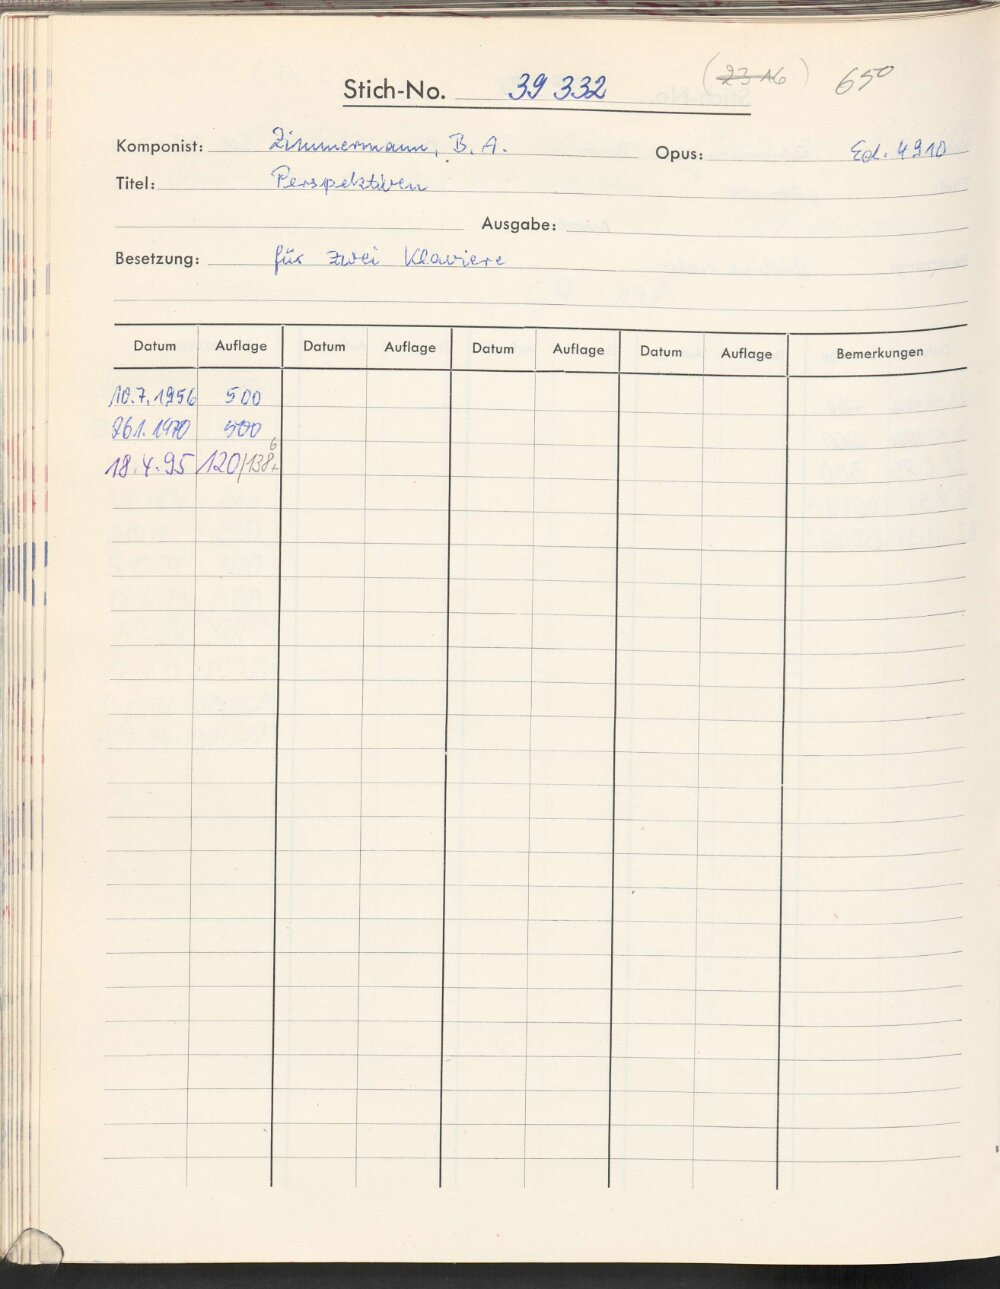 Stich-No. 39 332 (23 16) 650
Komponist: Zimmermann, B. A. Opus: Ed. 4910
Titel: Perspektiven
Ausgabe:
Besetzung: für zwei Klaviere
Datum Auflage Datum Auflage Datum Auflage Datum Auflage Bemerkungen
10.7.1956 500
26.1.1970 500
18.4.95 120/138